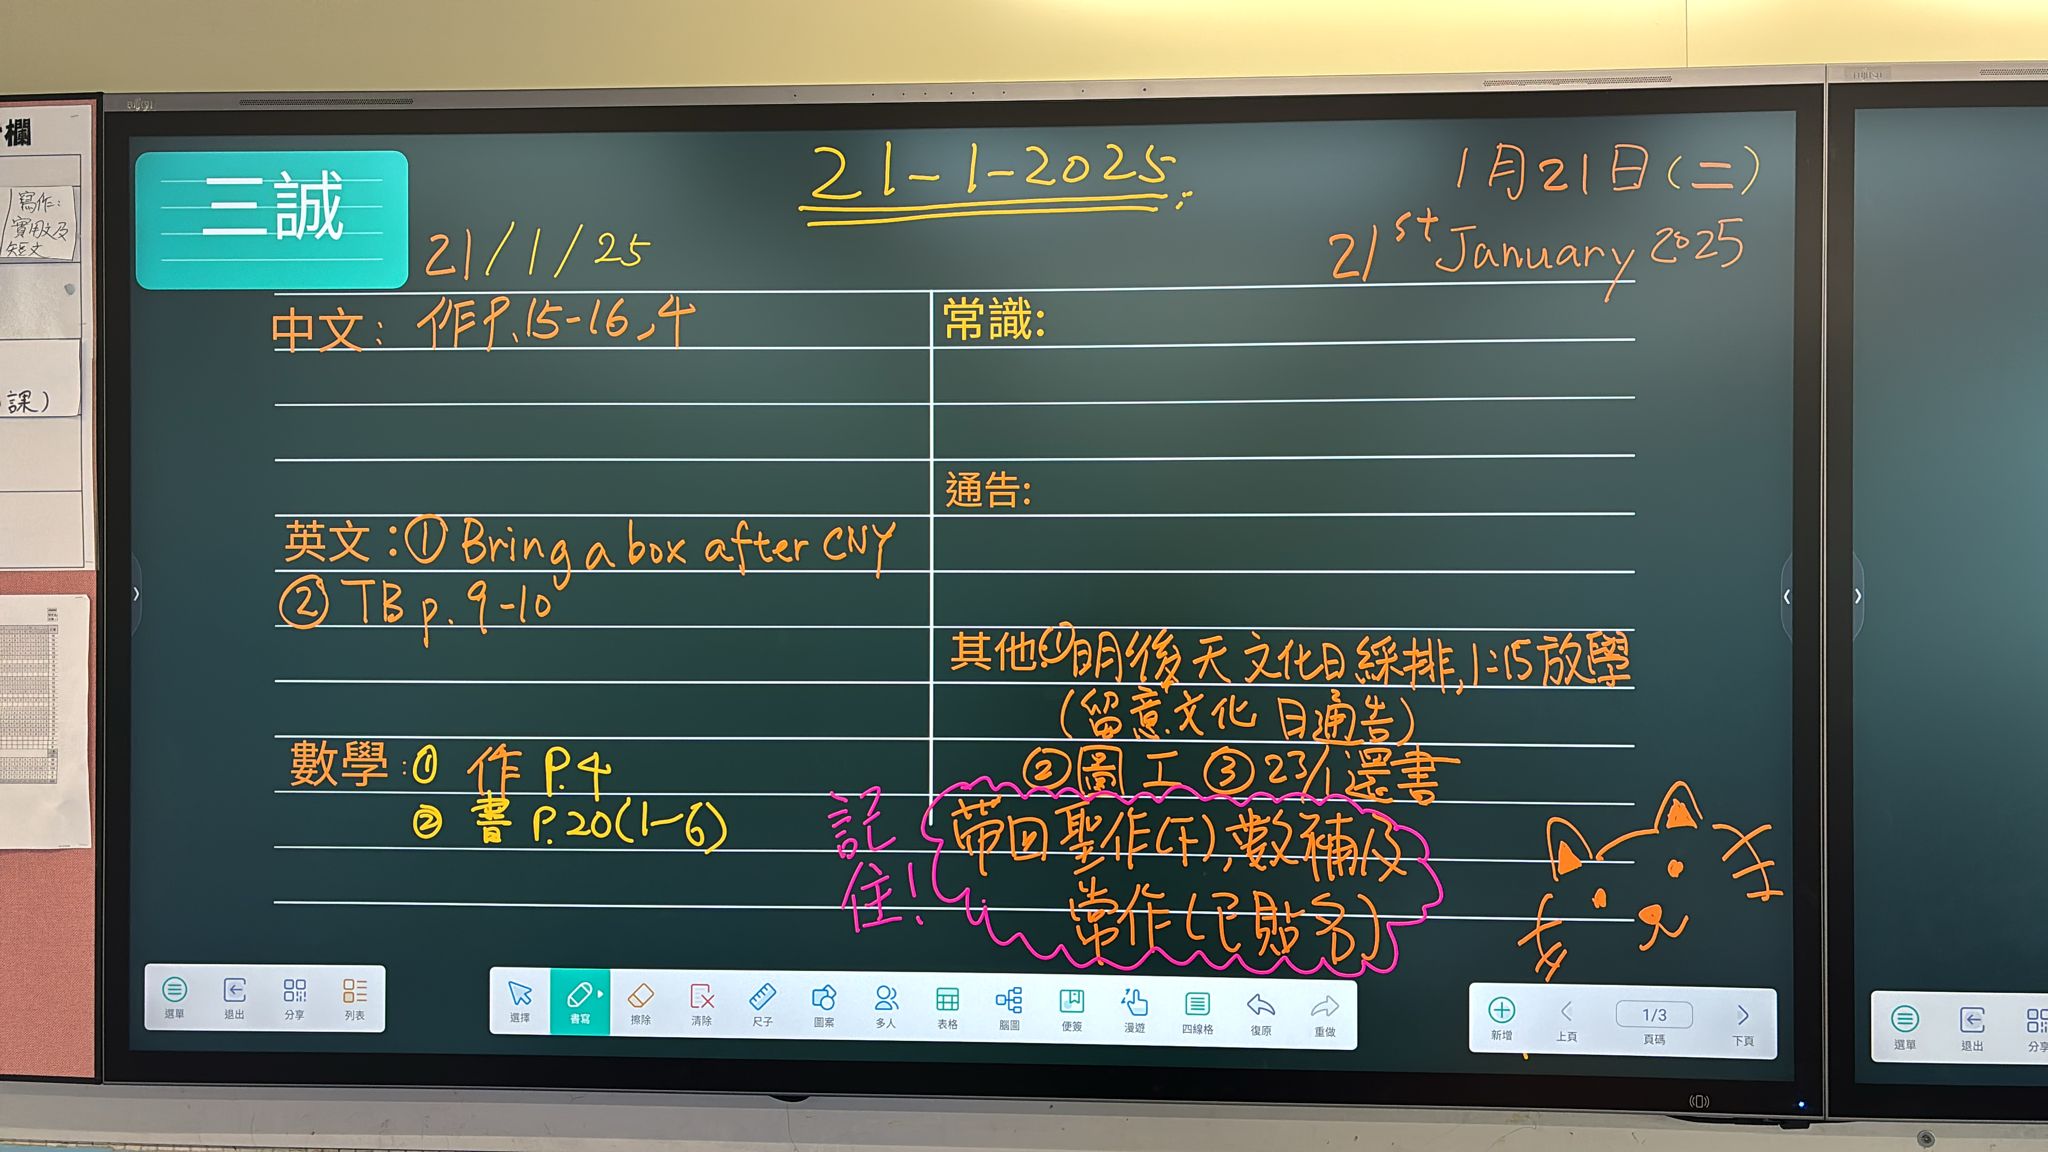 欄
寫作:
實用文及
短文
課)
三誠
21-1-2025
1月21日(二)
21/1/25
21st January 2025
中文: 作P.15-16,4
英文:① Bring a box after CNY
② TB p.9-10
數學:① 作 P.4
② 書 P.20(1-6)
常識:
通告:
其他:①明後天文化日綵排,1:15放學
(留意文化日通告)
②圖工 ③23/1選書
記住!
帶回聖作(下),數補及
常作(已貼名)
選單 退出 分享 列表
選擇 書寫 擦除 清除 尺子 圖案 多人 表格 腦圖 便簽 漫遊 四線格 復原 重做
新增 上頁 1/3 頁碼 下頁
選單 退出 分享